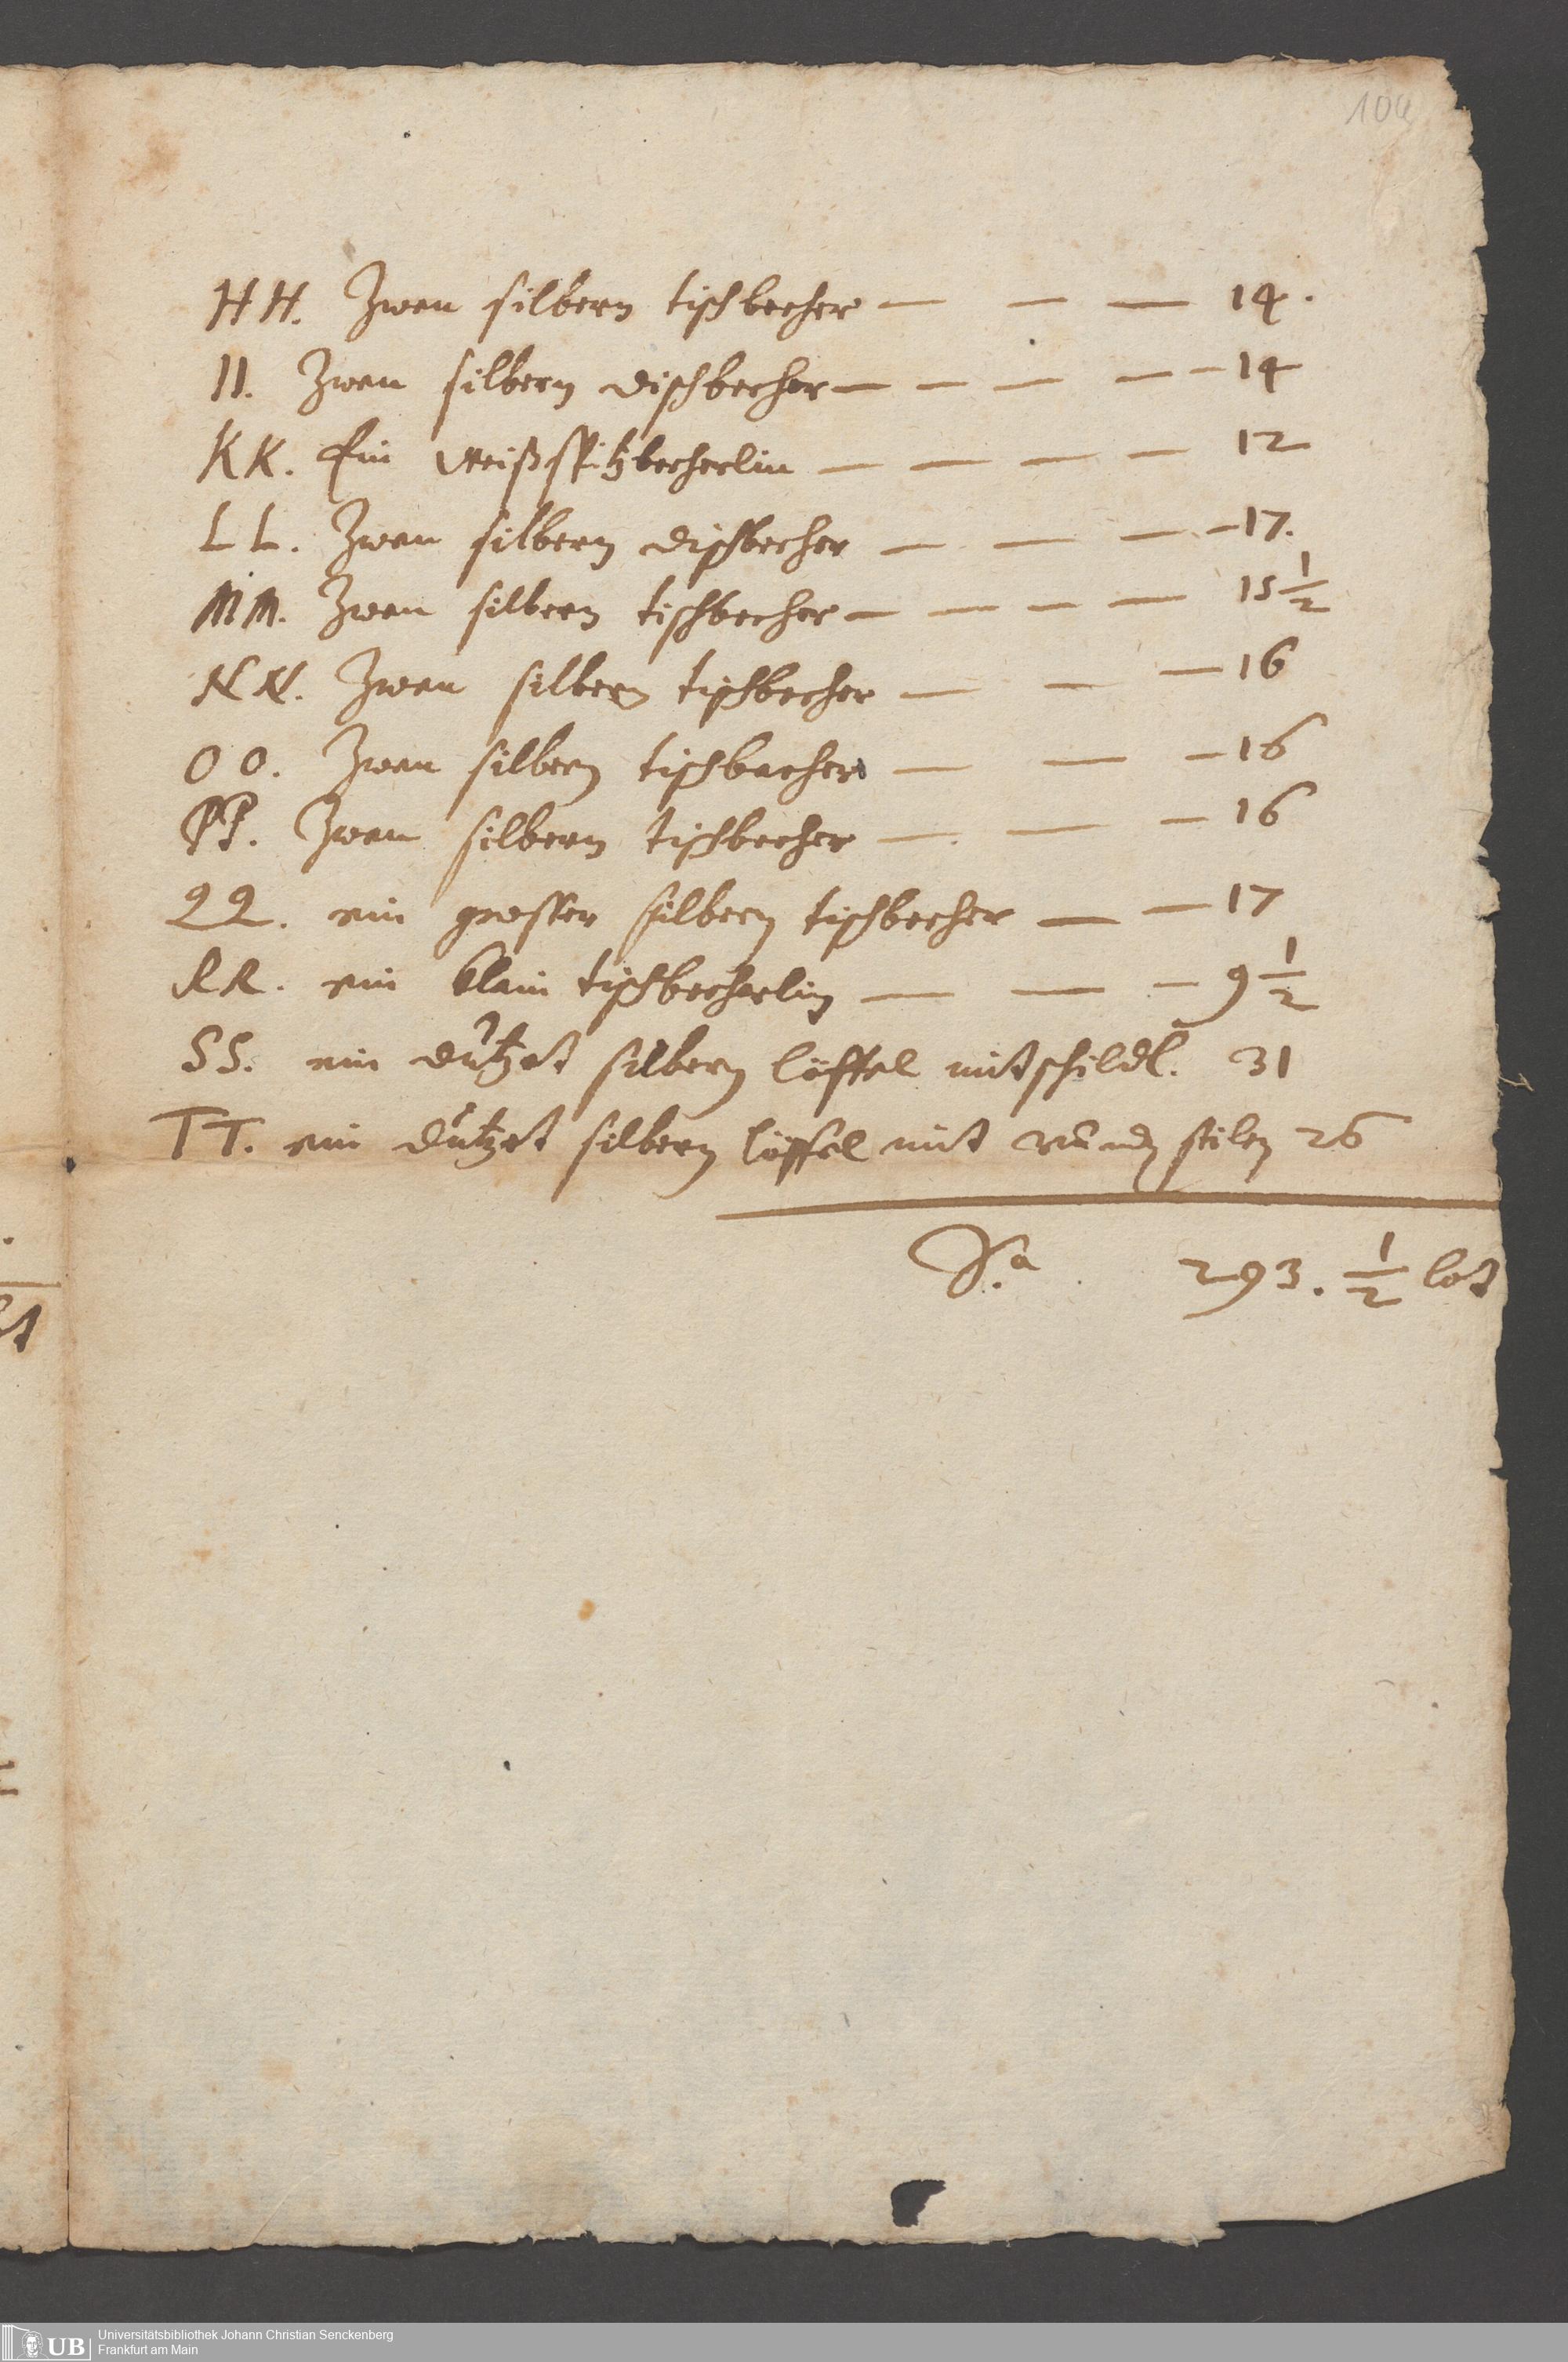 104
HH. Zwen silbern tischbecher — — — 14.
II. Zwen silbern dischbecher — — — — 14
KK. Ein weißspitzbecherlin — — — — 12
LL. Zwen silbern dischbecher — — — — 17.
MM. Zwen silbern tischbecher — — — — 15 1/2
NN. Zwen silbern tischbecher — — — 16
OO. Zwen silbern tischbecher — — — 16
PP. Zwen silbern tischbecher — — — 16
QQ. ein grosser silbern tischbecher — — 17
RR. ein klain tischbecherlin — — — 9 1/2
SS. ein dutzet silbern löffel mit schildl. 31
TT. ein dutzet silbern löffel mit rundn stilen 26
Sa. 293. 1/2 lot
UB Universitätsbibliothek Johann Christian Senckenberg
Frankfurt am Main